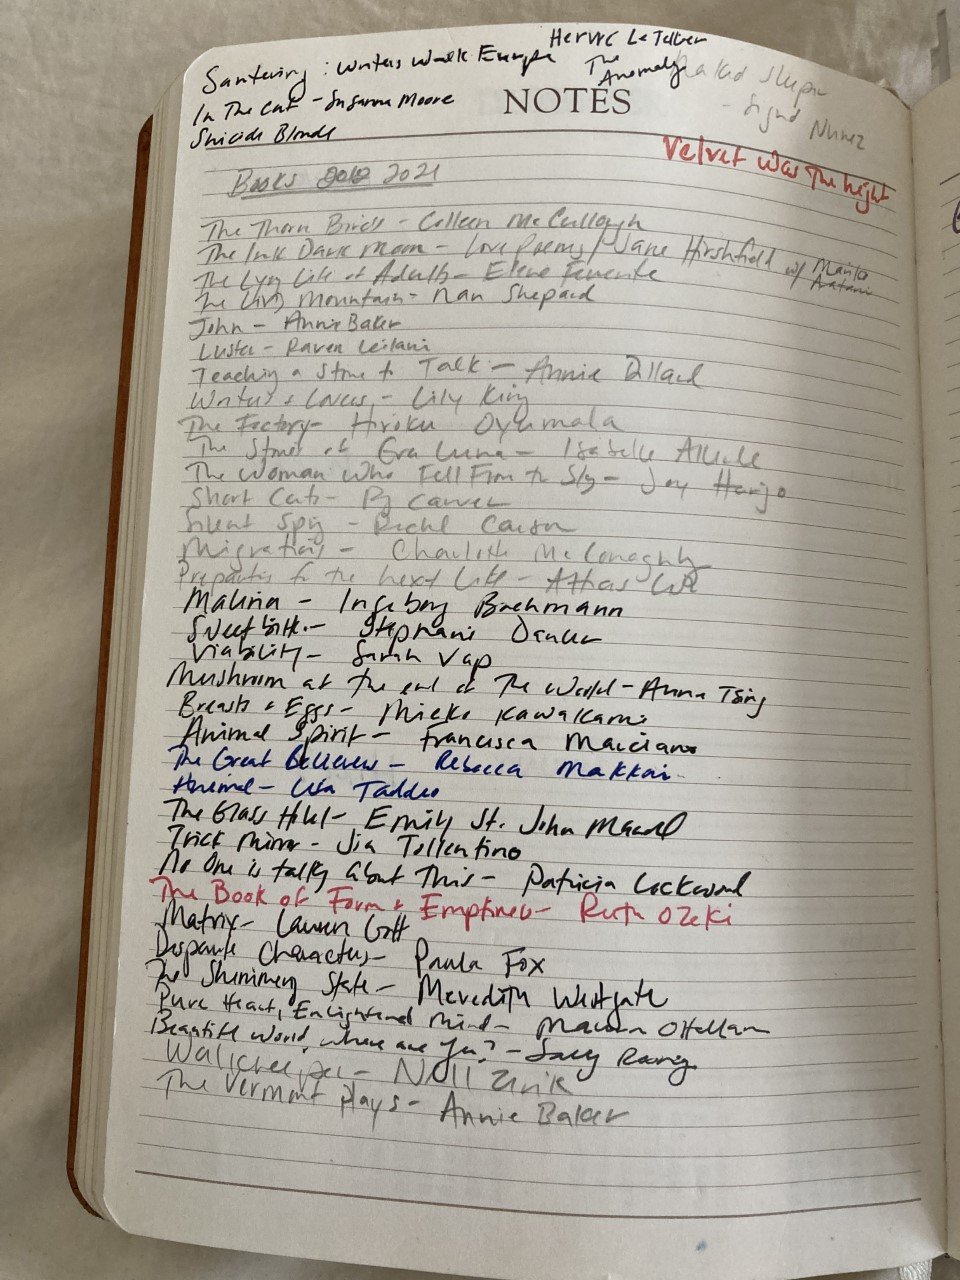 Santering: Writers Walk Europe
Herve Le Tellier
The Anomaly
Naked Sleeper
- Sigrid Nunez
In The Cut - Susanna Moore
NOTES
Suicide Blonde
Velvet Was The Night
Books 2021
The Thorn Birds - Colleen McCullough
The Ink Dark Moon - Love Poems / Jane Hirshfield w/ Mariko Aratani
The Lying Life of Adults - Elena Ferrante
The Living Mountain - Nan Shepard
John - Annie Baker
Luster - Raven Leilani
Teaching a Stone to Talk - Annie Dillard
Writers & Lovers - Lily King
The Factory - Hiroku Oyamada
The Stories of Eva Luna - Isabelle Allende
The Woman Who Fell From the Sky - Joy Harjo
Short Cuts - Ray Carver
Silent Spring - Rachel Carson
Migrations - Charlotte McConaghy
Preparation for the Next Life - Atticus Lish
Malina - Ingeborg Bachmann
Sweetbitter - Stephanie Danler
Viability - Sarah Vap
Mushroom at the end of The World - Anna Tsing
Breasts & Eggs - Mieko Kawakami
Animal Spirit - Francesca Marciano
The Great Believers - Rebecca Makkai
Animal - Lisa Taddeo
The Glass Hotel - Emily St. John Mandel
Trick Mirror - Jia Tollentino
No One is talking About This - Patricia Lockwood
The Book of Form & Emptiness - Ruth Ozeki
Matrix - Lauren Groff
Desperate Characters - Paula Fox
The Shimmering State - Meredith Westgate
Pure Heart, Enlightened Mind - Maura O'Halloran
Beautiful World, where are you? - Sally Rooney
Wallcreeper - Nell Zink
The Vermont Plays - Annie Baker